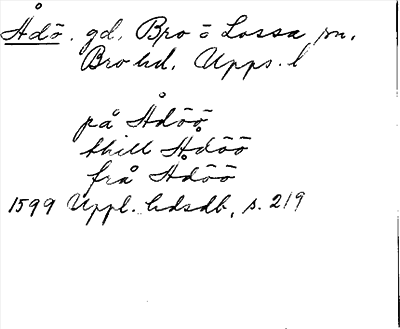 Ådö. gd, Bro o Lossa sn.
Bro hd. Upps. l
på Ådöö
thill Ådöö
frå Ådöö
1599 Uppl. hdsdb, s. 219